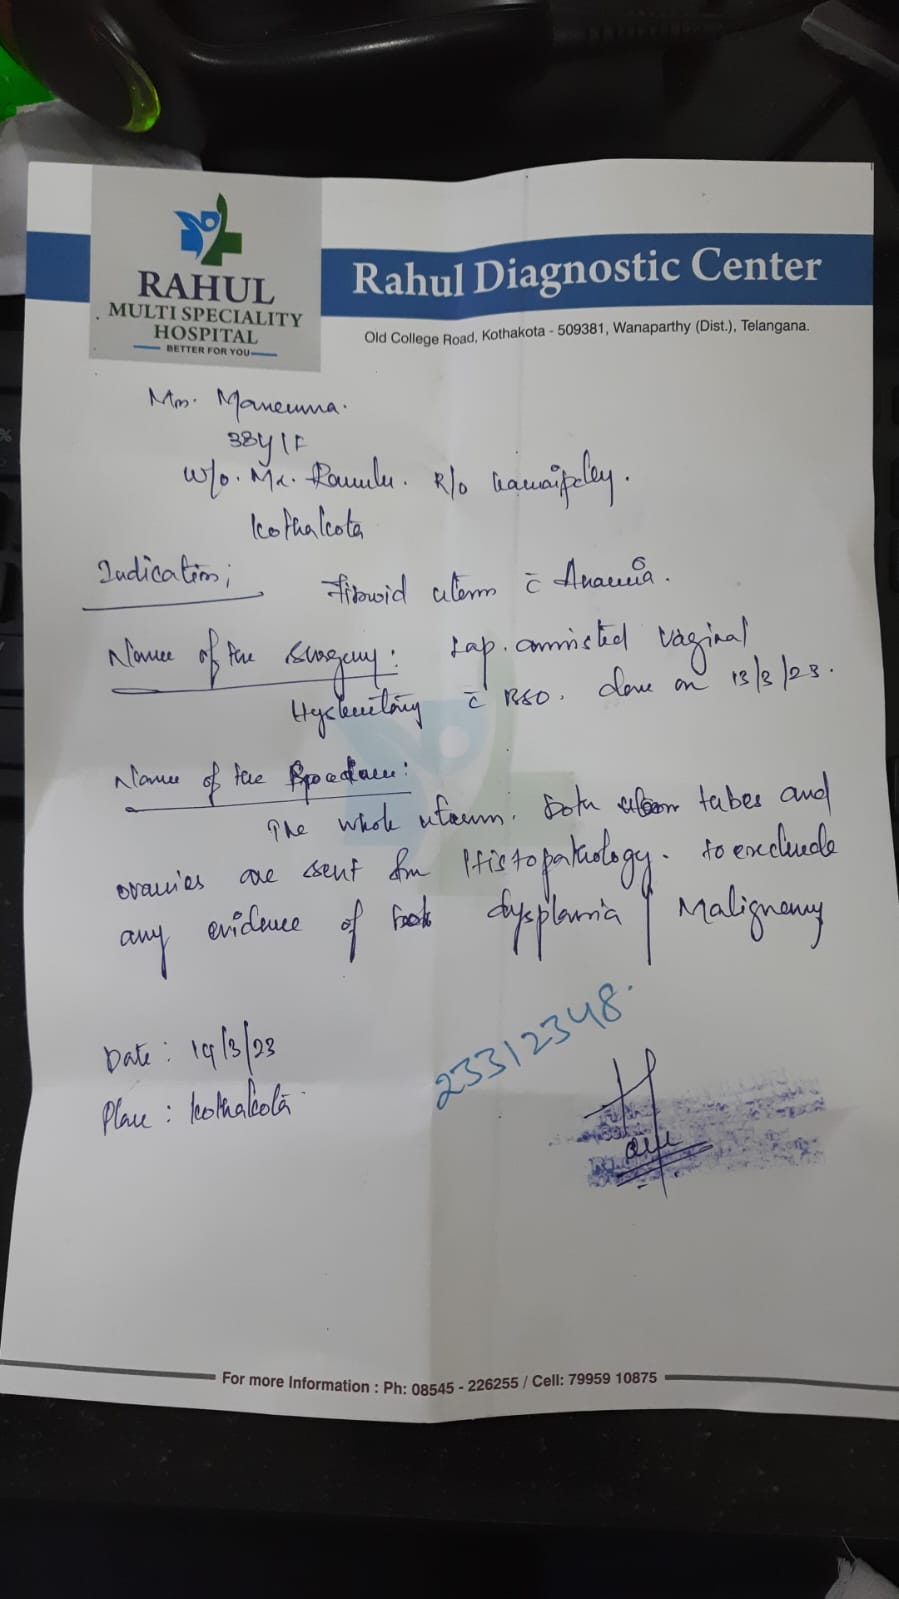 RAHUL
MULTI SPECIALITY
HOSPITAL
BETTER FOR YOU
Rahul Diagnostic Center
Old College Road, Kothakota - 509381, Wanaparthy (Dist.), Telangana.
Mrs. Manemma.
38Y/F
W/o. Mr. Ramulu. R/o
Kothakota
Indication;
Fibroid uterus c̄ Anaemia.
Name of the Surgery: Lap. assisted Vaginal
Hysterectomy c̄ BSO. done on 13/3/23.
Name of the Procedure:
The whole uterus. both tubes and
ovaries are sent for Histopathology. to exclude
any evidence of dysplasia / Malignancy
Date: 19/3/23
Place: Kothakota
23312348.
For more Information : Ph: 08545 - 226255 / Cell: 79959 10875